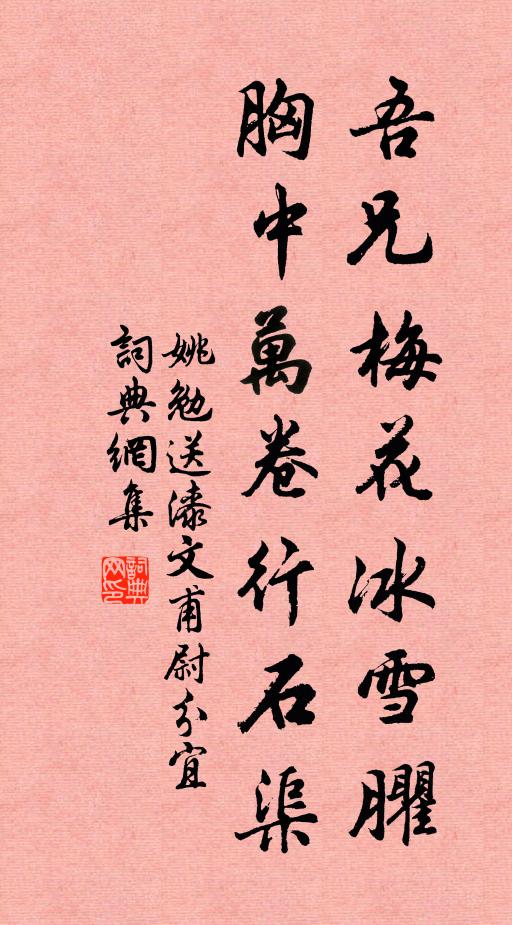 吾兄梅花冰雪臞
胸中萬卷行石渠
姚勉送漆文甫尉分宜
詞典網集
詞典网印